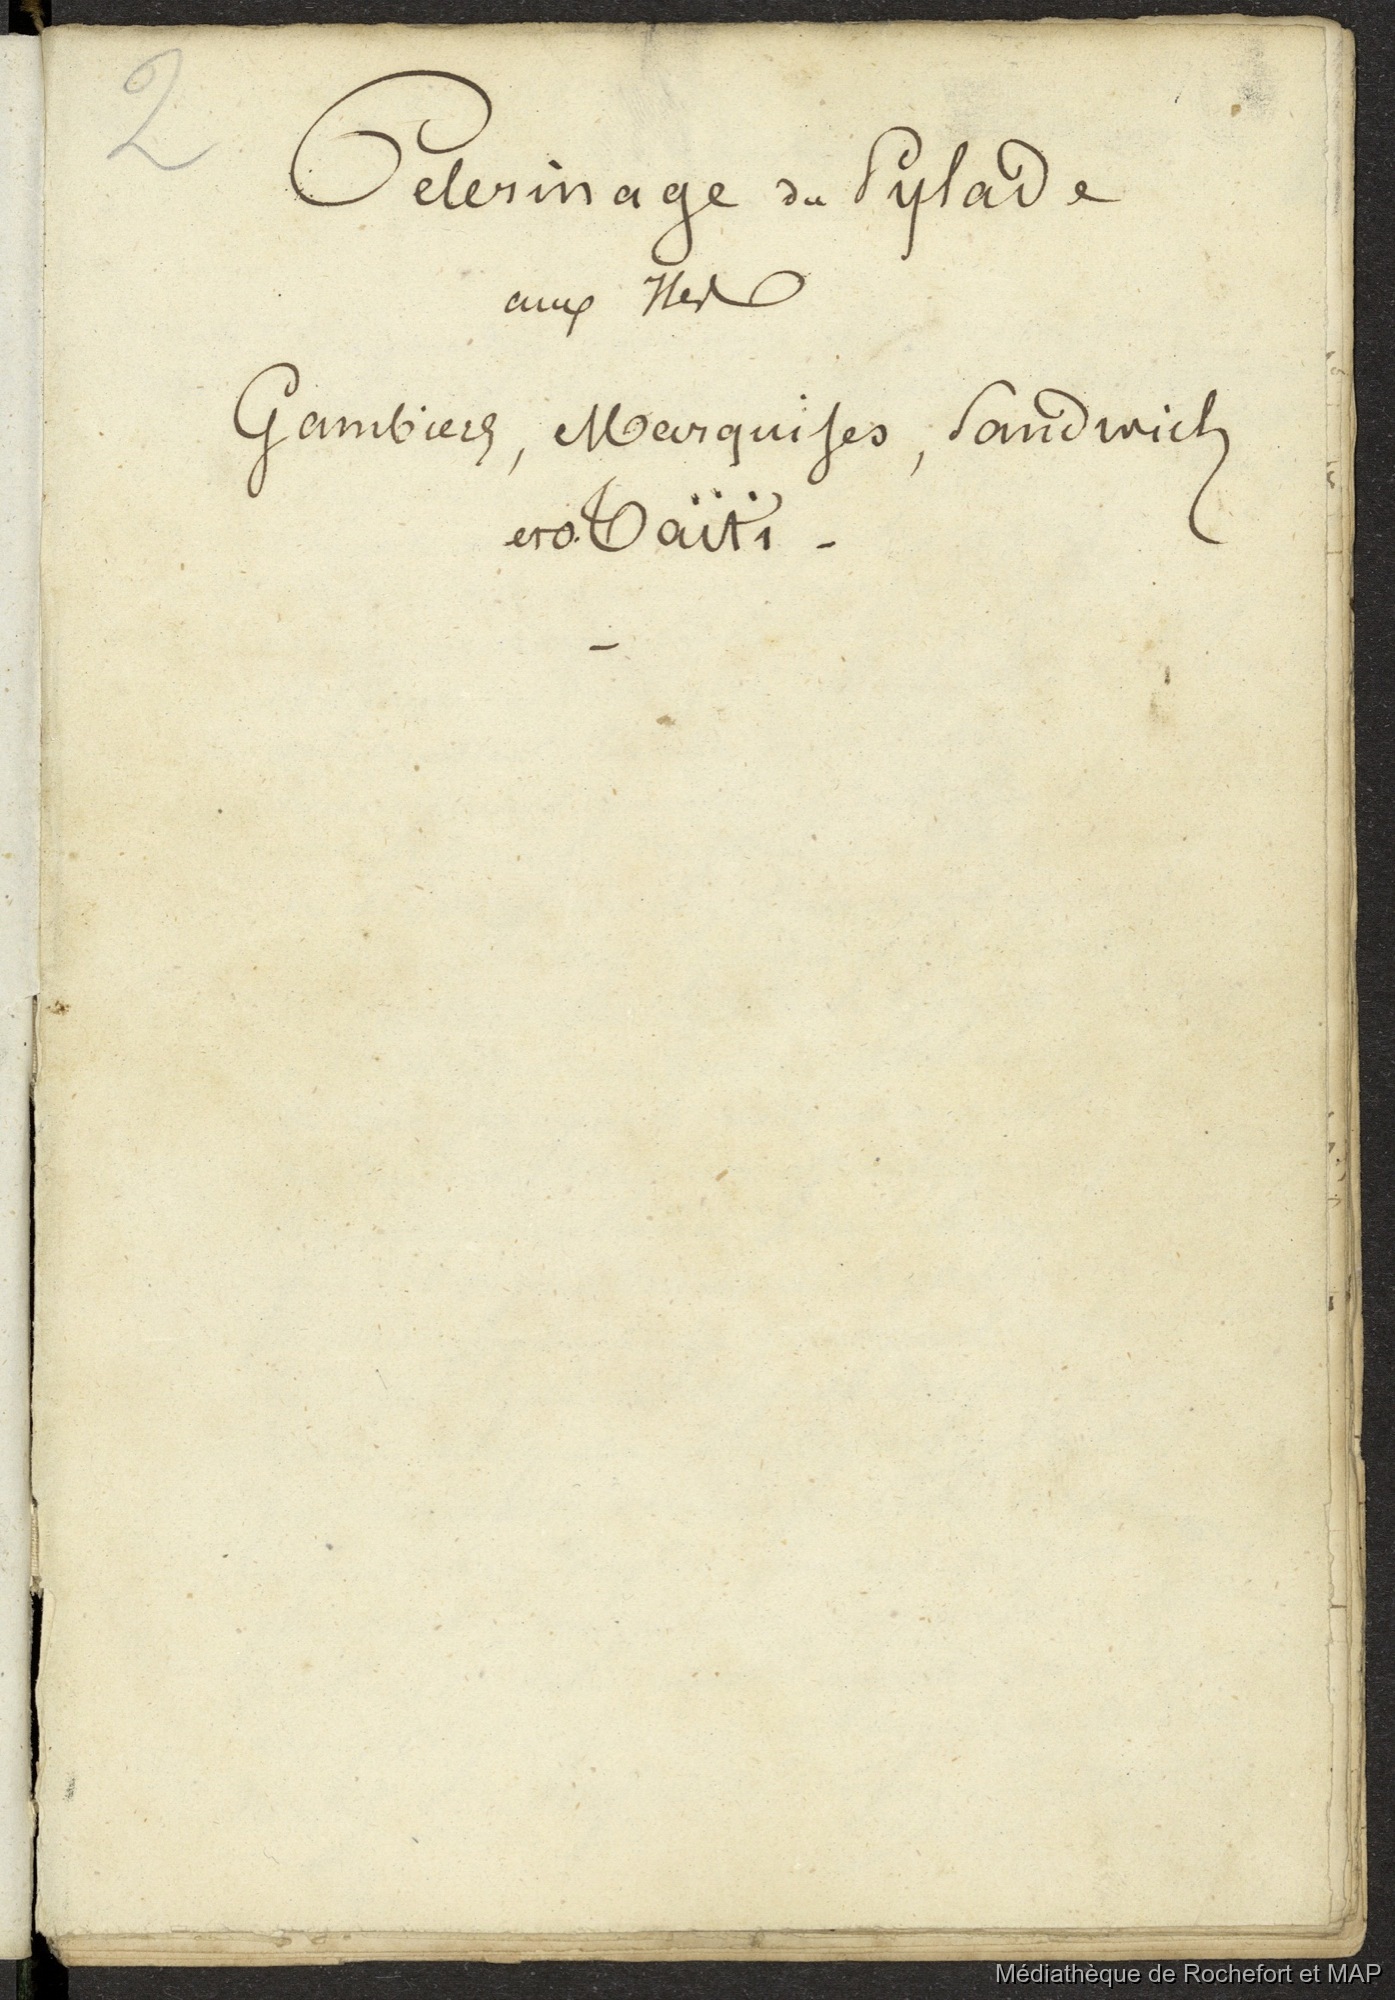 2
Pelerinage du Pylade
aux Iles
Gambiers, Marquises, Sandwich
et Taïti -
-
Médiathèque de Rochefort et MAP